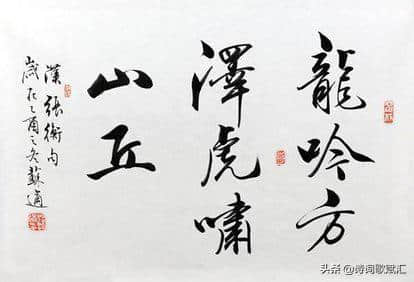 龍吟方
澤虎嘯
山丘
漢張衡句
歲在乙酉之冬蘇適
头条 @诗词歌赋汇